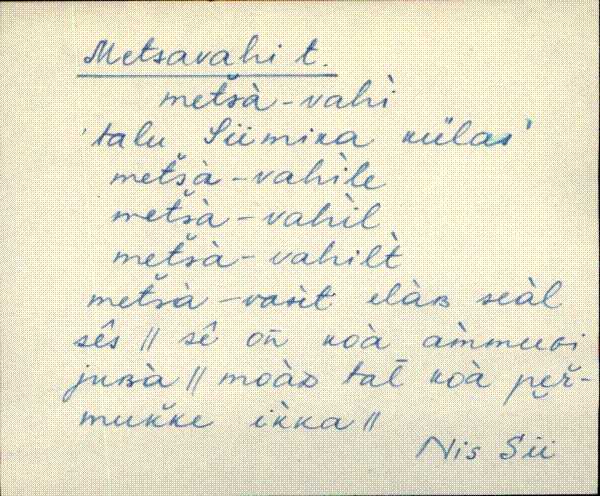 Metsavahi t.
metšà-vahì
'talu Siimika külas'
metšà-vahìle
metšà-vahìl
metšà-vahilt̀
metšà-vasìt elàʙ seàl
sês // sê oñ koà aìmmuɢi
juʙà // moàᴅ tat̄ koà peř-
mukke ikka //
Nis Sii